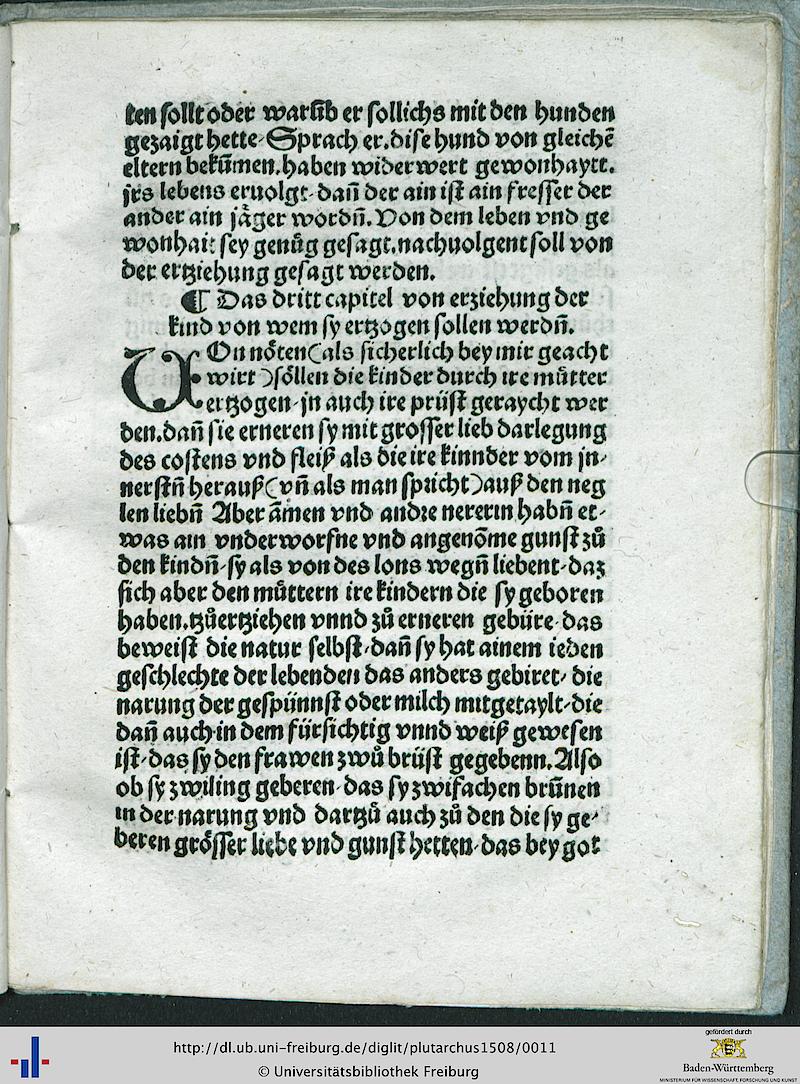 ten sollt oder warūb er sollichs mit den hunden
gezaigt hette. Sprach er. dise hund von gleichē
eltern bekūmen. haben widerwert gewonhaytt.
jrs lebens eruolgt. dañ der ain ist ain fresser der
ander ain jäger wordñ. Von dem leben vnd ge
wonhait sey genůg gesagt. nachuolgent soll von
der ertziehung gesagt werden.
¶ Das dritt capitel von erziehung der
kind von wem sy ertzogen sollen werdñ.
VOn nöten (als sicherlich bey mir geacht
wirt) söllen die kinder durch ire můtter
ertzogen. jn auch ire prüst geraycht wer
den. dañ sie erneren sy mit grosser lieb darlegung
des costens vnd fleiß als die ire kinnder vom jn-
nerstñ herauß (vñ als man spricht) auß den neg
len liebñ Aber āmen vnd andre nererin habñ et-
was ain vnderworfne vnd angenōme gunst zů
den kindñ. sy als von des lons wegñ liebent. daz
sich aber den můttern ire kindern die sy geboren
haben. tzůertziehen vnnd zů erneren gebüre. das
beweist die natur selbst. dañ sy hat ainem ieden
geschlechte der lebenden das anders gebiret. die
narung der gespünnst oder milch mitgetaylt. die
dañ auch in dem fürsichtig vnnd weiß gewesen
ist. das sy den frawen zwů brüst gegebenn. Also
ob sy zwiling geberen. das sy zwifachen brūnen
in der narung vnd dartzů auch zů den die sy ge-
beren grösser liebe vnd gunst hetten. das bey got
http://dl.ub.uni-freiburg.de/diglit/plutarchus1508/0011
© Universitätsbibliothek Freiburg
gefördert durch
Baden-Württemberg
MINISTERIUM FÜR WISSENSCHAFT, FORSCHUNG UND KUNST